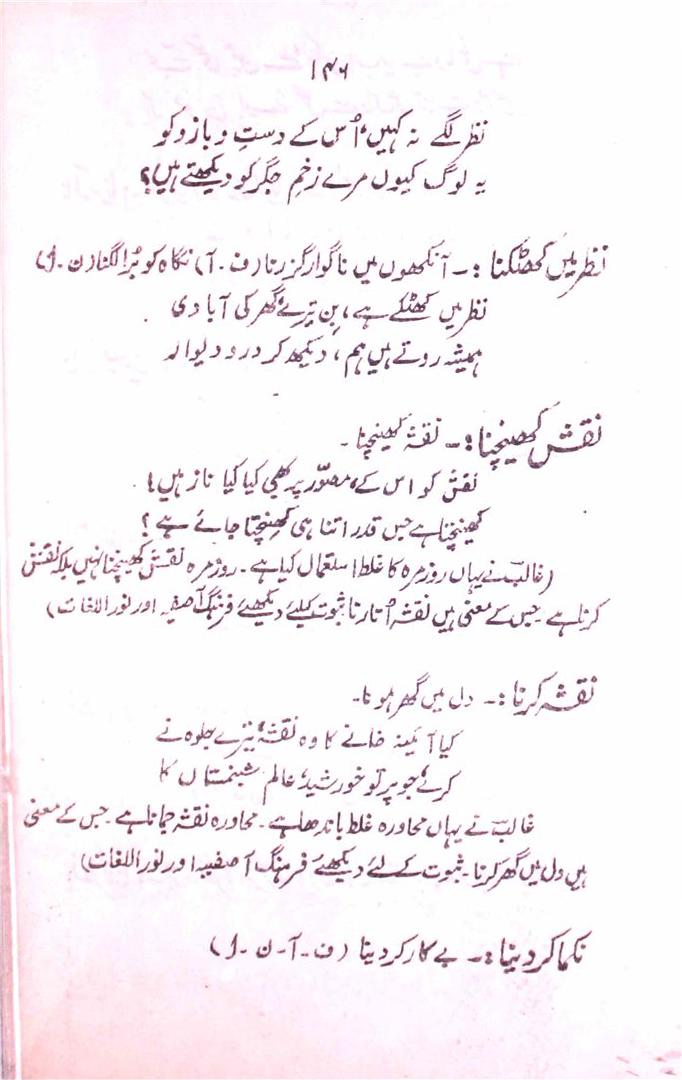 ۱۴۶
نظر لگے نہ کہیں، اُس کے دست و بازو کو
یہ لوگ کیوں مرے زخمِ جگر کو دیکھتے ہیں؟
نظر میں کھٹکنا :۔ آنکھوں میں ناگوار گزرنا (ف۔آ) نگاہ کو بُرا لگنا (ن۔ل)
نظر میں کھٹکے ہے، بِن تیرے، گھر کی آبادی
ہمیشہ روتے ہیں ہم، دیکھ کر در و دیوار
نقش کھینچنا :۔ نقشہ کھینچنا ۔
نقش کو اس کے، مصوّر پر بھی کیا کیا ناز ہیں!
کھینچتا ہے جس قدر اتنا ہی کھنچتا جائے ہے؟
(غالبؔ نے یہاں روزمرہ کا غلط استعمال کیا ہے۔ روزمرہ نقش کھینچنا نہیں بلکہ نقش
کرنا ہے ۔جس کے معنی ہیں نقشہ اُتارنا ثبوت کیلئے دیکھئے فرہنگ آصفیہ اور نور اللغات)
نقشہ کرنا :۔ دل میں گھر ہونا۔
کیا آئینہ خانے کا وہ نقشہ، تیرے جلوہ نے
کرے، جو پرتو خورشید، عالم شبنمستاں کا
غالبؔ نے یہاں محاورہ غلط باندھا ہے۔ محاورہ نقشہ جمانا ہے۔ جس کے معنی
ہیں دل میں گھر کرنا۔ ثبوت کے لئے دیکھئے فرہنگ آصفیہ اور نور اللغات)
نکما کردینا :۔ بے کار کردینا (ف۔آ۔ن۔ل)